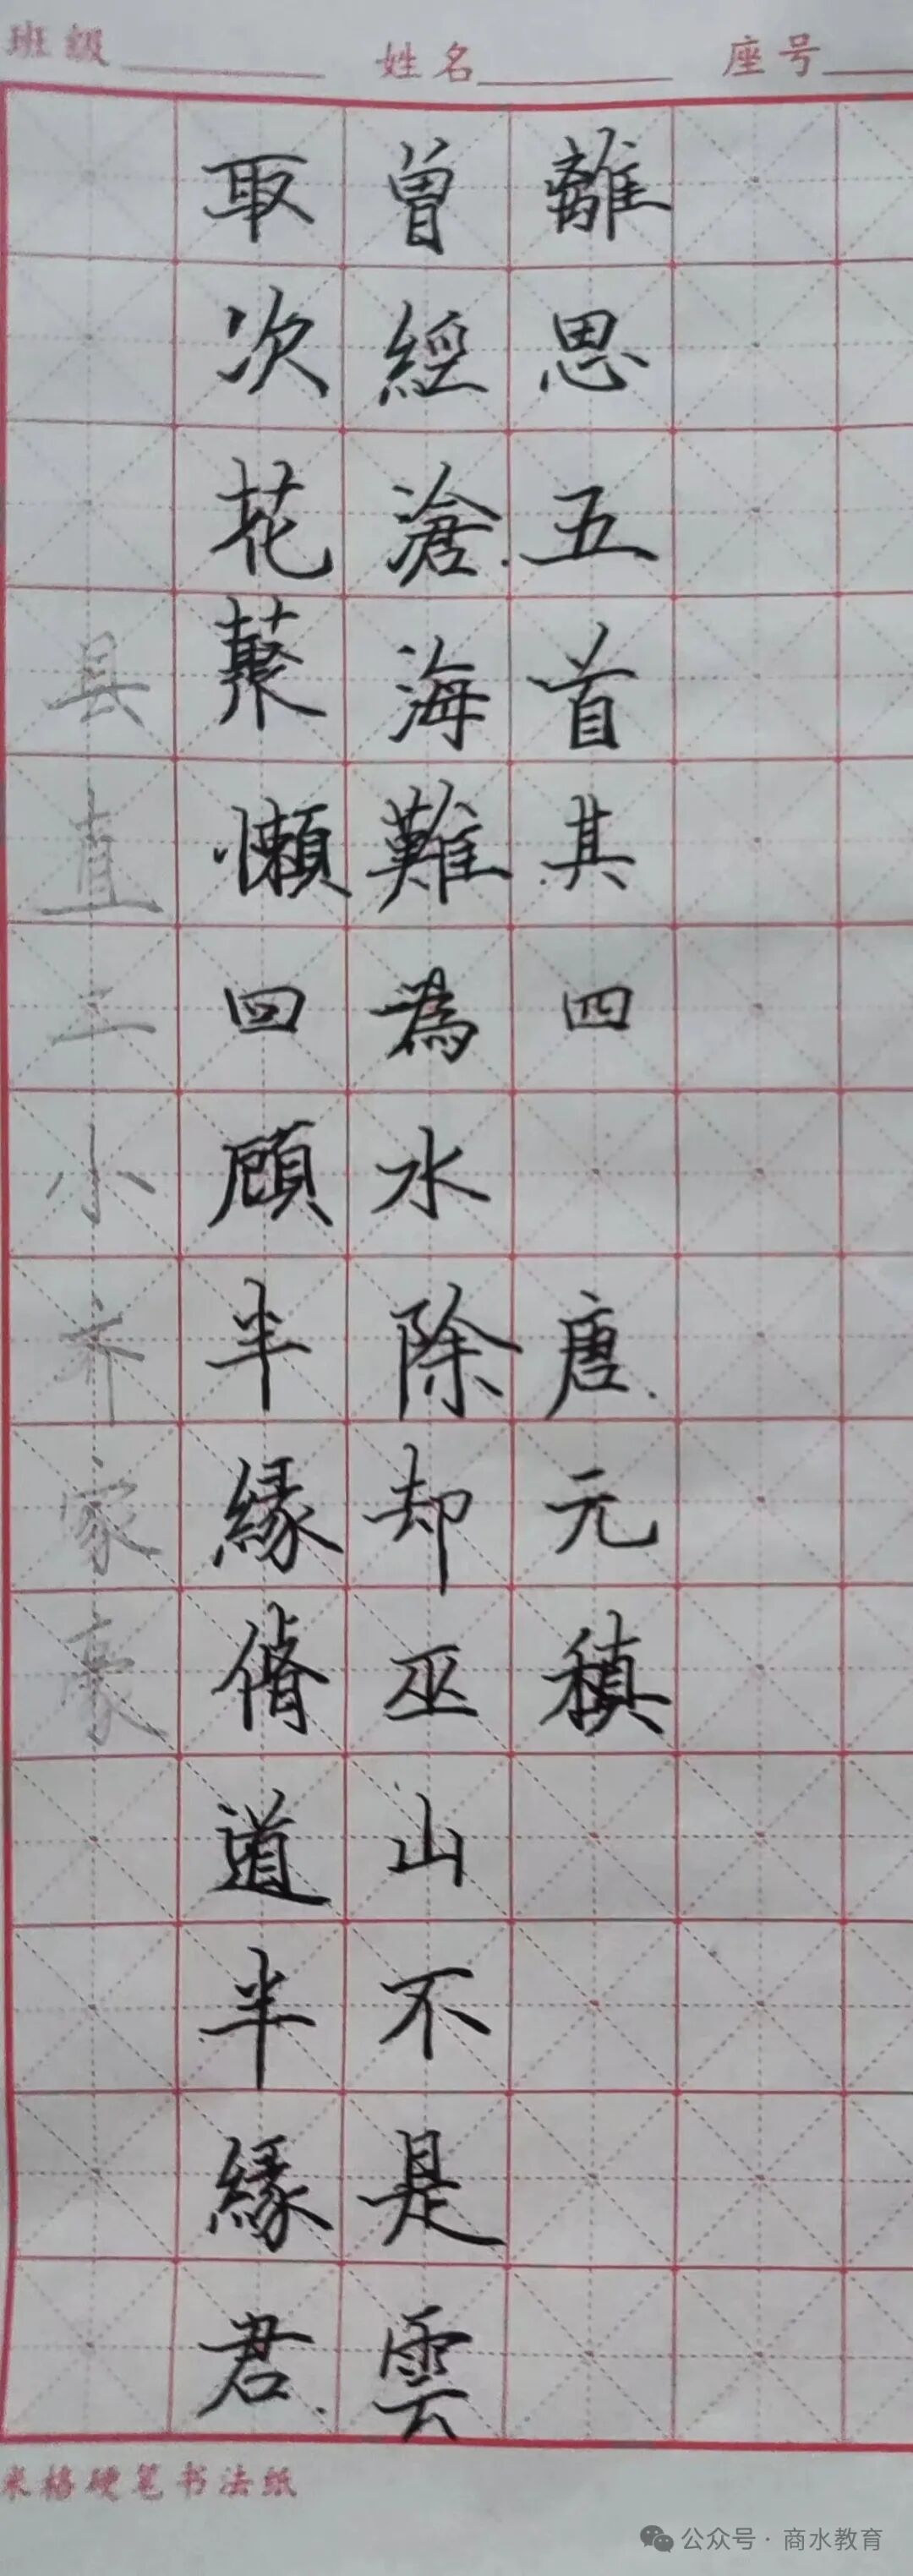 班级 姓名 座号
離思五首其四 唐元稹
曾經滄海難為水除却巫山不是雲
取次花藂懶回顧半緣脩道半緣君
县直三小乔家豪
米格硬笔书法纸
公众号·商水教育